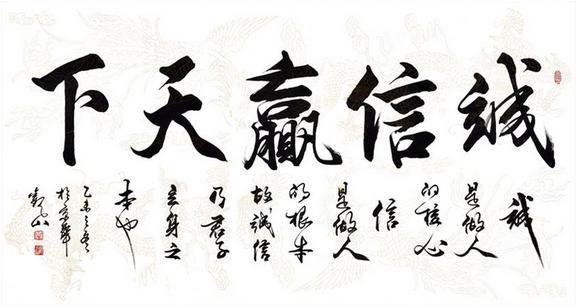 誠信贏天下
誠
是做人
的核心
信
是做人
的根本
故誠信
乃君子
立身之
本也
乙未之冬
於京華